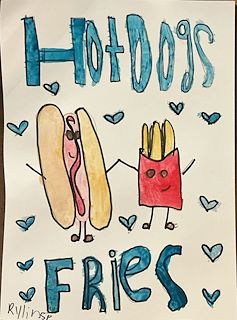 HotDogs
FRies
Rylinsp